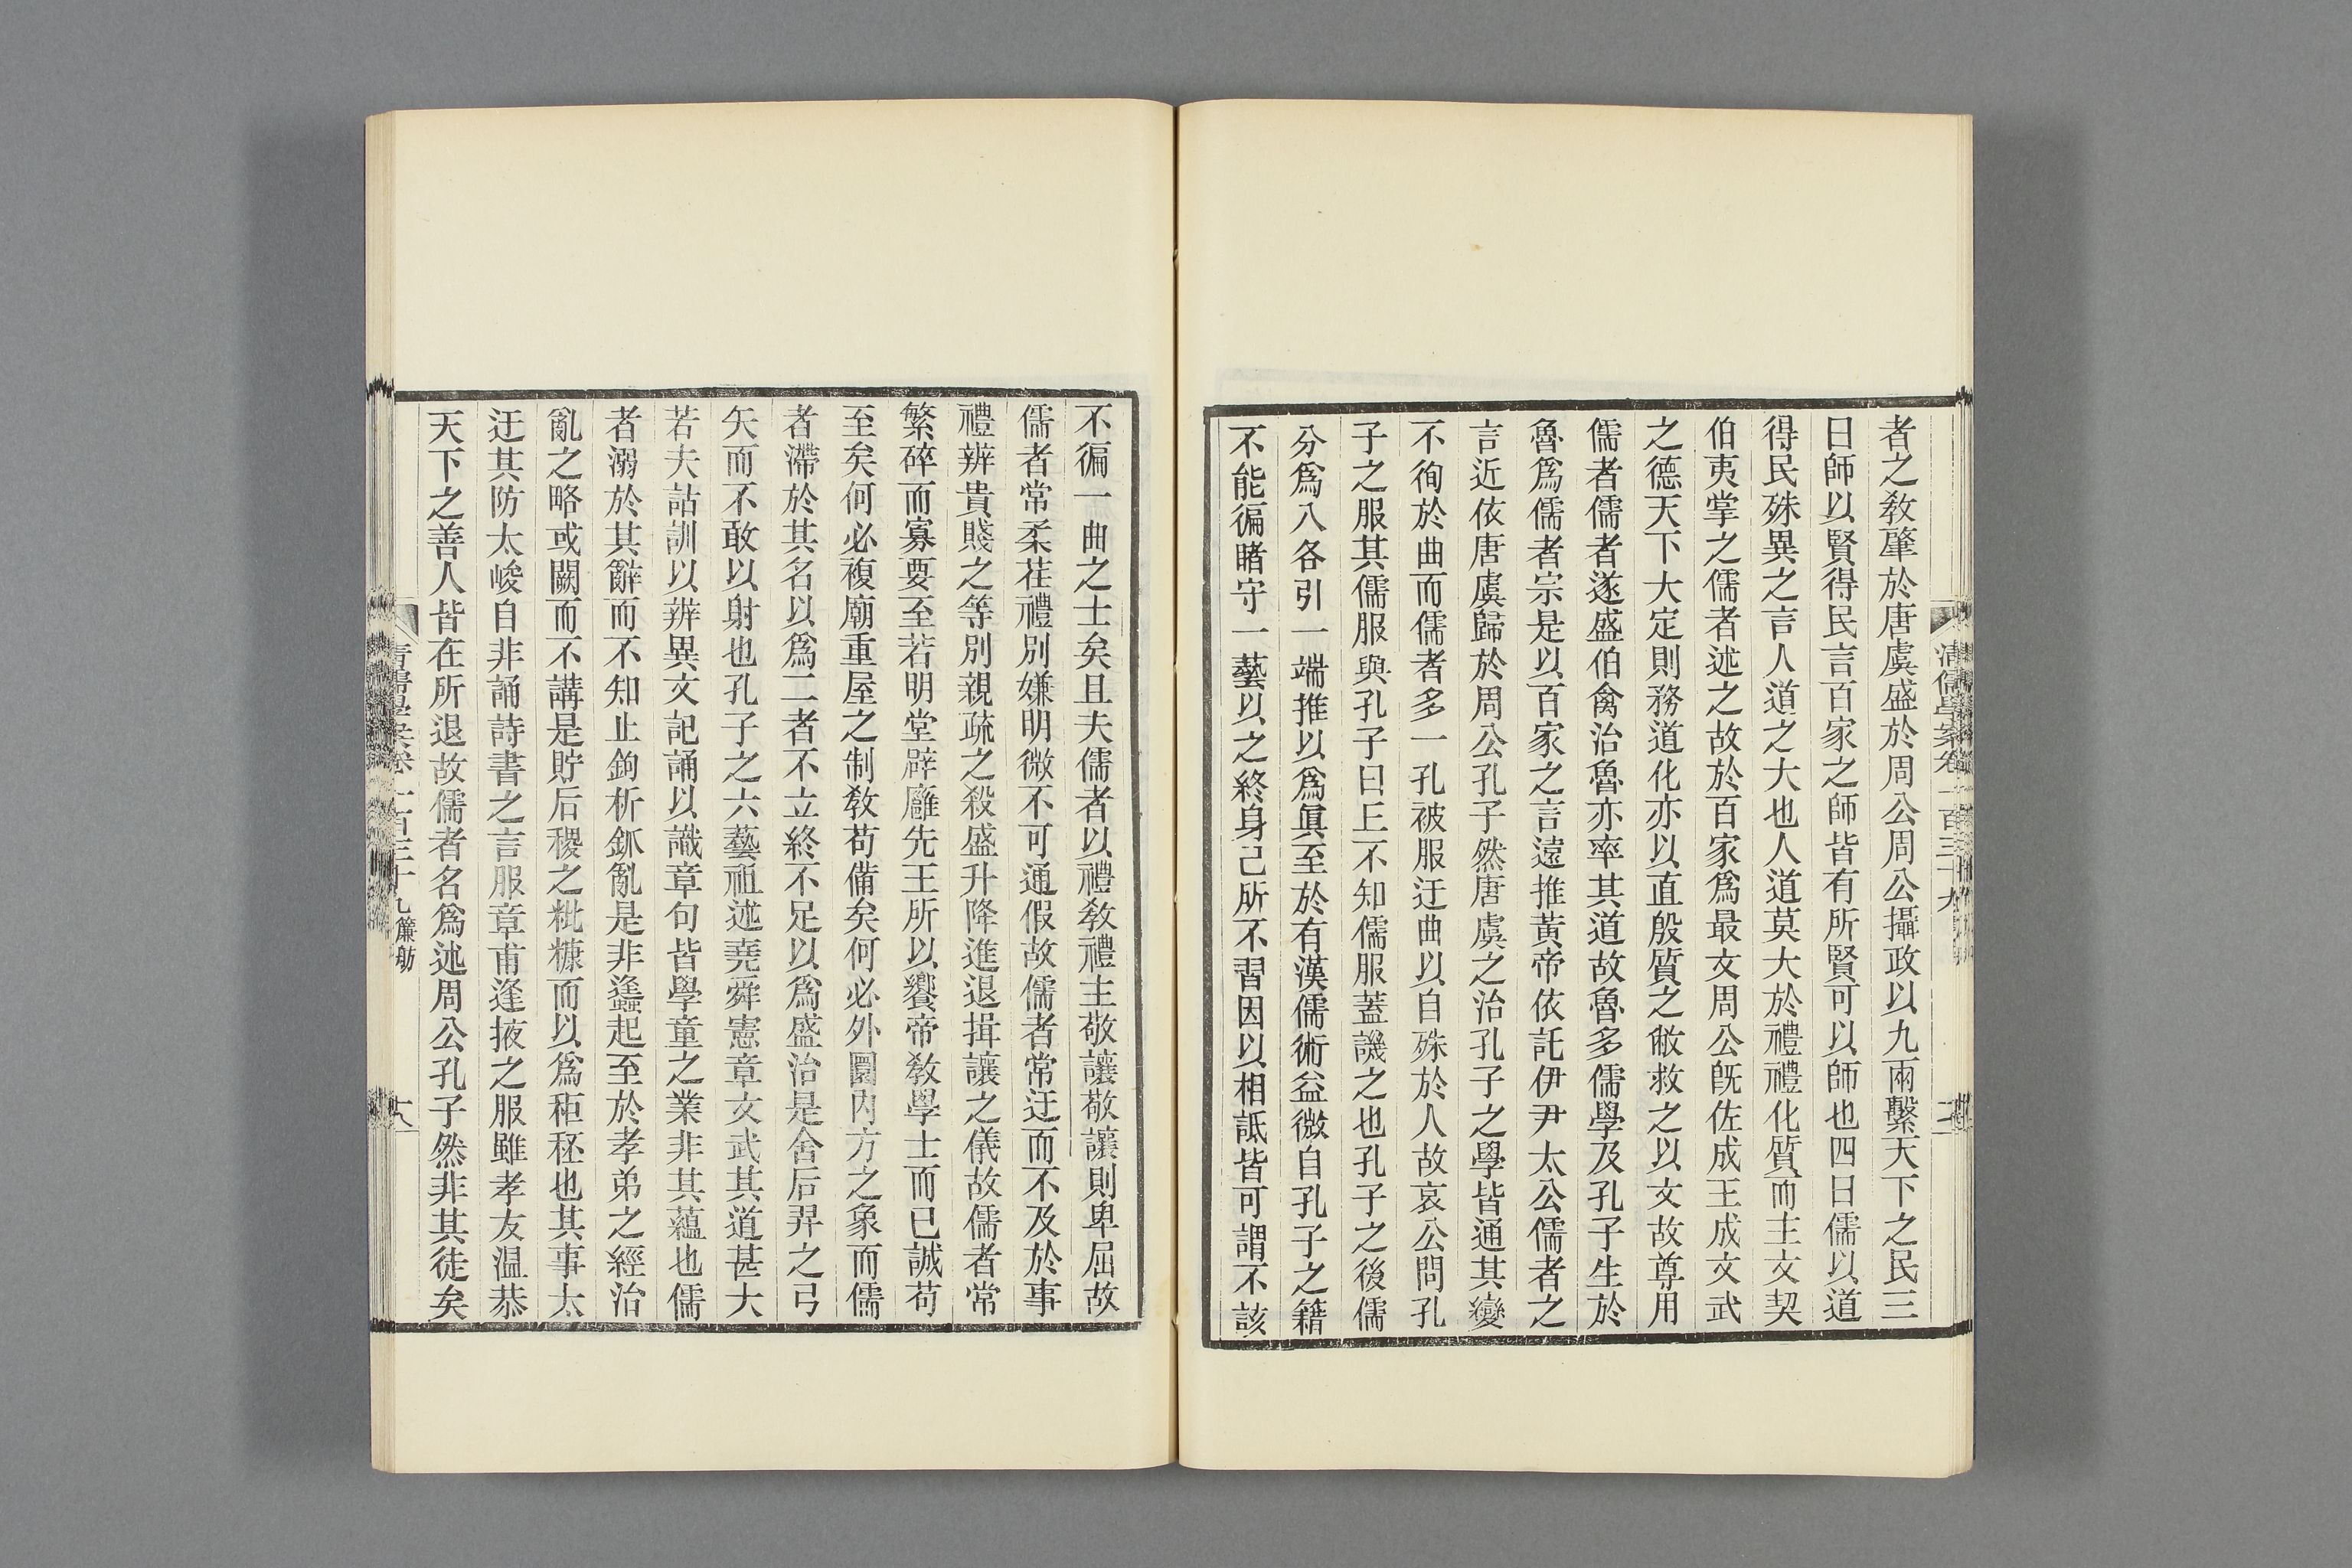 者之敎肇於唐虞盛於周公周公攝政以九兩繫天下之民三
曰師以賢得民言百家之師皆有所賢可以師也四曰儒以道
得民殊異之言人道之大也人道莫大於禮禮化質而主文契
伯夷掌之儒者述之故於百家爲最文周公旣佐成王成文武
之德天下大定則務道化亦以直殷質之敝救之以文故尊用
儒者儒者遂盛伯禽治魯亦率其道故魯多儒學及孔子生於
魯爲儒者宗是以百家之言遠推黃帝依託伊尹太公儒者之
言近依唐虞歸於周公孔子然唐虞之治孔子之學皆通其變
不徇於曲而儒者多一孔被服迂曲以自殊於人故哀公問孔
子之服其儒服與孔子曰丘不知儒服蓋譏之也孔子之後儒
分爲八各引一端推以爲眞至於有漢儒術益微自孔子之籍
不能徧睹守一藝以之終身己所不習因以相詆皆可謂不該
不徧一曲之士矣且夫儒者以禮敎禮主敬讓敬讓則卑屈故
儒者常柔荏禮別嫌明微不可通假故儒者常迂而不及於事
禮辨貴賤之等別親疏之殺盛升降進退揖讓之儀故儒者常
繁碎而寡要至若明堂辟廱先王所以饗帝敎學士而已誠苟
至矣何必複廟重屋之制敎苟備矣何必外圜内方之象而儒
者滯於其名以爲二者不立終不足以爲盛治是舍后羿之弓
矢而不敢以射也孔子之六藝祖述堯舜憲章文武其道甚大
若夫詁訓以辨異文記誦以識章句皆學童之業非其蘊也儒
者溺於其辭而不知止鉤析釽亂是非蠭起至於孝弟之經治
亂之略或闕而不講是貯后稷之秕穅而以爲秬秠也其事太
迂其防太峻自非誦詩書之言服章甫逢掖之服雖孝友溫恭
天下之善人皆在所退故儒者名爲述周公孔子然非其徒矣
清儒學案卷一百三十九簾舫